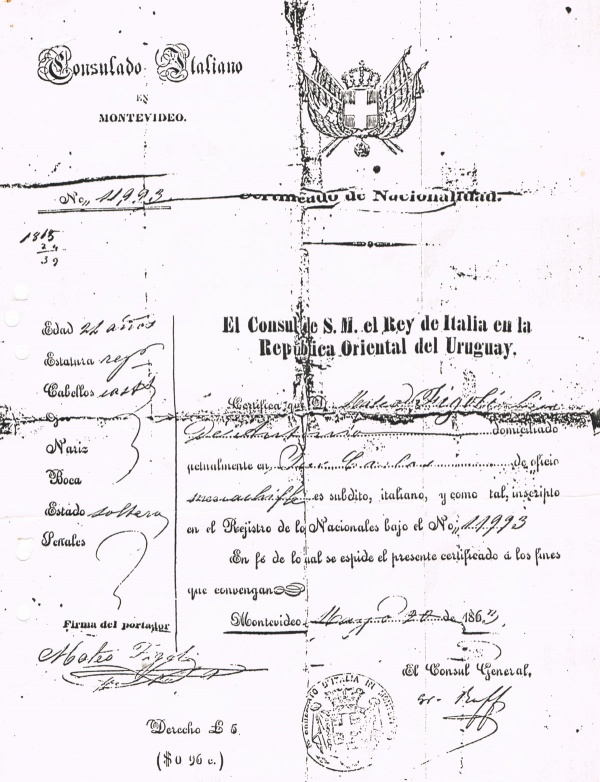 Consulado Italiano
EN
MONTEVIDEO.
No,, 11993
Certificado de Nacionalidad.
1815
24
39
Edad 24 años
Estatura reg.
Cabellos cast
Ojos
Nariz
Boca
Estado soltero
Señales
Firma del portador
Mateo
El Consul de S. M. el Rey de Italia en la
República Oriental del Uruguay,
Certifica que El
domiciliado
actualmente en San Carlos de oficio
es subdito, italiano, y como tal, inscripto
en el Registro de los Nacionales bajo el No,, 11993
En fé de lo cual se espide el presente certificado á los fines
que convengan
Montevideo Mayo 20 de 1863
El Consul General,
Derecho £ 5.
($ 0 96 c.)